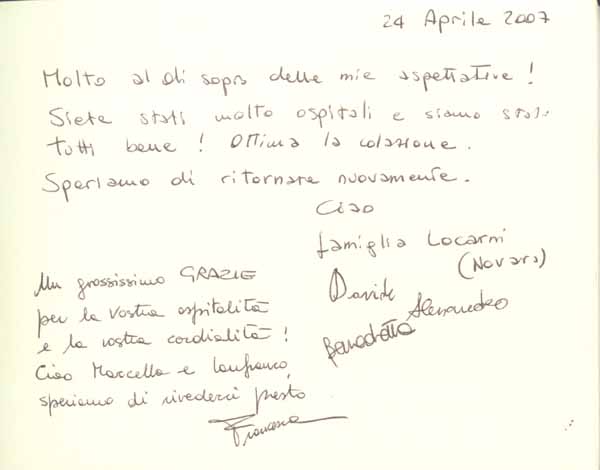 24 Aprile 2007
Molto al di sopra delle mie aspettative!
Siete stati molto ospitali e siamo stati
tutti bene! Ottima la colazione.
Speriamo di ritornare nuovamente.
Ciao
famiglia Locarni
(Novara)
Davide
Alessandro
Benedetta
Un grossissimo GRAZIE
per la vostra ospitalità
e la vostra cordialità!
Ciao Marcella e Lanfranco,
speriamo di rivederci presto
Francesca